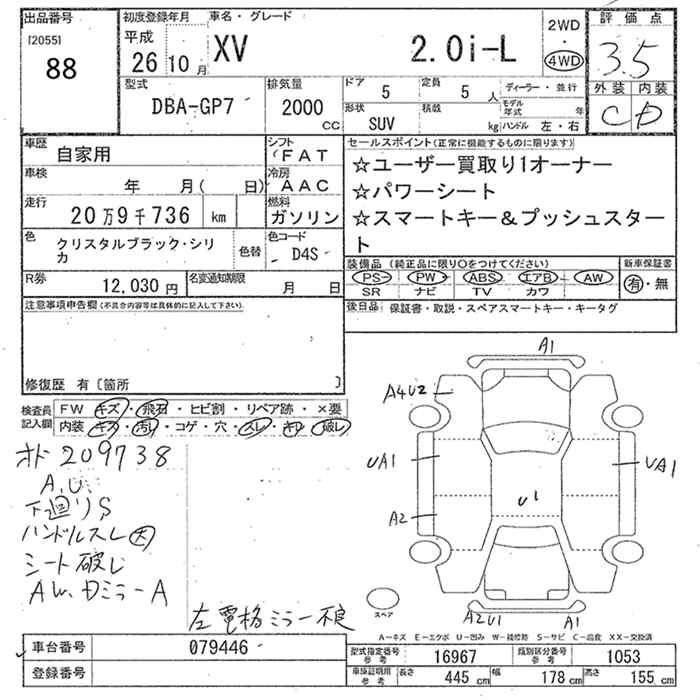 出品番号 初度登録年月 車名・グレード 2WD 評価点
[2055] 平成
88 26 10月 XV 2.0i-L ・ 4WD 3.5
型式 排気量 ドア 定員 ディーラー・並行 外装 内装
DBA-GP7 2000 CC 5 5 人 モデル年式 年 C D
形状 積載
SUV kg ハンドル 左・右
車歴 自家用 シフト FAT セールスポイント(正常に機能するものに限ります)
車検 年 月( 日) 冷房 AAC ☆ユーザー買取り1オーナー
走行 20万9千736 km 燃料 ガソリン ☆パワーシート
☆スマートキー&プッシュスタート
色 クリスタルブラック・シリカ 色替 色コード D4S
装備品(純正品に限り○をつけてください) 新車保証書
R券 12,030円 名変通知期限 月 日 PS PW ABS エアB AW 有・無
SR ナビ TV カワ
注意事項申告欄(不具合内容等は具体的に記入して下さい) 後日品 保証書・取説・スペアスマートキー・キータグ
修復歴 有〔箇所 〕
A1
A4U2
検査員記入欄 FW キズ・飛石・ヒビ割・リペア跡・×要
内装 キズ・汚れ・コゲ・穴・スレ・キレ・破レ
オド 209738
A.U. UA1 UA1
下廻りS U1
ハンドルスレ大 A2
シート破レ
AW.Dミラー A
左電格ミラー不良 スペア A2U1 A1
A-キズ E-エクボ U-凹み W-補修跡 S-サビ C-腐食 XX-交換済
車台番号 079446 型式指定番号 参考 16967 類別区分番号 参考 1053
登録番号 車庫証明用 参考 長さ 445cm 幅 178cm 高さ 155cm